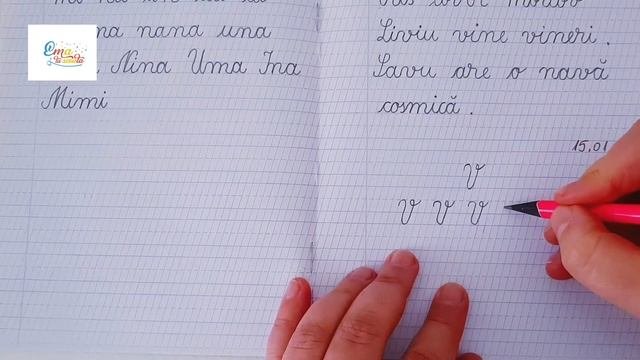 Ema
la școală
nana una
Nina Uma Ina
Mimi
Liviu vine vineri .
Savu are o navă
cosmică .
15,01
V
V V V